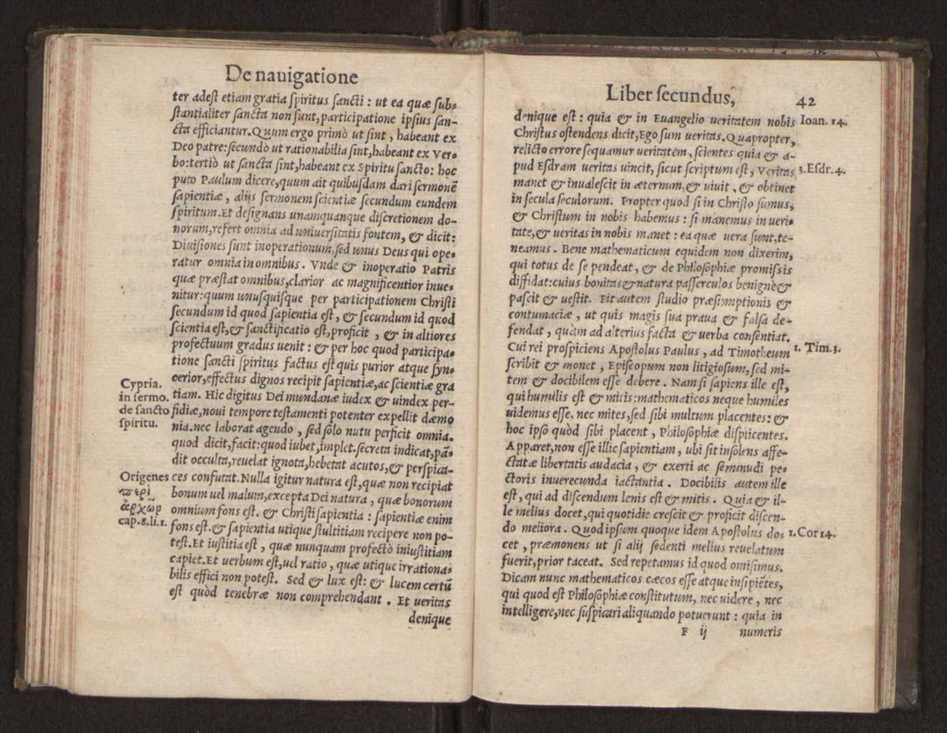 De nauigatione
ter adest etiam gratia spiritus sancti : ut ea quæ sub-
stantialiter sancta non sunt, participatione ipsius san-
cta efficiantur. Quum ergo primò ut sint , habeant ex
Deo patre: secundò ut rationabilia sint, habeant ex Ver-
bo: tertiò ut sancta sint, habeant ex Spiritu sancto: hoc
puto Paulum dicere, quum ait quibusdam dari sermonē
sapientiæ , alijs sermonem scientiæ secundum eundem
spiritum. Et designans unamquanque discretionem do-
norum, refert omnia ad uniuersitatis fontem, & dicit:
Diuisiones sunt inoperationum, sed unus Deus qui ope-
ratur omnia in omnibus. Vnde & inoperatio Patris
quæ præstat omnibus, clarior ac magnificentior inue-
nitur: quum unusquisque per participationem Christi
secundum id quod sapientia est , & secundum id quod
scientia est, & sanctificatio est, proficit , & in altiores
profectuum gradus uenit : & per hoc quod participa-
tione sancti spiritus factus est quis purior atque syn-
cerior, effectus dignos recipit sapientiæ, ac scientiæ gra
tiam. Hic digitus Dei mundanæ iudex & uindex per-
fidiæ, noui tempore testamenti potenter expellit dæmo
nia. nec laborat agendo , sed solo nutu perficit omnia.
quod dicit, facit: quod iubet, implet. secreta indicat, pā-
dit occulta, reuelat ignota, hebetat acutos, & perspica-
ces confutat. Nulla igitur natura est, quæ non recipiat
bonum uel malum, excepta Dei natura , quæ bonorum
omnium fons est. & Christi sapientia : sapientiæ enim
fons est. & sapientia utique stultitiam recipere non po-
test. Et iustitia est , quæ nunquam profectò iniustitiam
capiet. Et uerbum est, uel ratio , quæ utique irrationa-
bilis effici non potest. Sed & lux est: & lucem certū
est quòd tenebræ non comprehendant . Et ueritas
denique
Cypria.
in sermo.
de sancto
spiritu.
Origenes
περὶ
ἀρχῶρ
cap. 8. li. 1.
Liber secundus, 42
denique est : quia & in Euangelio ueritatem nobis
Christus ostendens dicit, Ego sum ueritas. Quapropter,
relicto errore sequamur ueritatem, scientes quia & a-
pud Esdram ueritas uincit, sicut scriptum est , Veritas
manet & inualescit in æternum, & uiuit , & obtinet
in secula seculorum. Propter quod si in Christo sumus,
& Christum in nobis habemus : si manemus in ueri-
tate, & ueritas in nobis manet : ea quæ uera sunt, te-
neamus . Bene mathematicum equidem non dixerim,
qui totus de se pendeat , & de Philosophiæ promissis
diffidat: cuius bonitas & natura passerculos benignè &
pascit & uestit. Fit autem studio præsumptionis &
contumaciæ , ut quis magis sua praua & falsa de-
fendat , quàm ad alterius facta & uerba consentiat.
Cui rei prospiciens Apostolus Paulus , ad Timotheum
scribit & monet , Episcopum non litigiosum, sed mi-
tem & docibilem esse debere . Nam si sapiens ille est,
qui humilis est & mitis: mathematicos neque humiles
uidemus esse. nec mites, sed sibi multum placentes: &
hoc ipso quòd sibi placent , Philosophiæ displicentes.
Apparet, non esse illic sapientiam , ubi sit insolens affe-
ctatæ libertatis audacia , & exerti ac seminudi pe-
ctoris inuerecunda iactantia . Docibilis autem ille
est , qui ad discendum lenis est & mitis . Quia & il-
le melius docet, qui quotidie crescit & proficit discen-
do meliora . Quod ipsum quoque idem Apostolus do-
cet , præmonens ut si alij sedenti melius reuelatum
fuerit, prior taceat. Sed repetamus id quod omisimus.
Dicam nunc mathematicos cæcos esse atque insipiētes,
qui quod est Philosophiæ constitutum, nec uidere , nec
intelligere, nec suspicari aliquando potuerunt : quia in
F ij numeris
Ioan. 14.
3. Esdr. 4.
1. Tim. 3.
1. Cor 14.